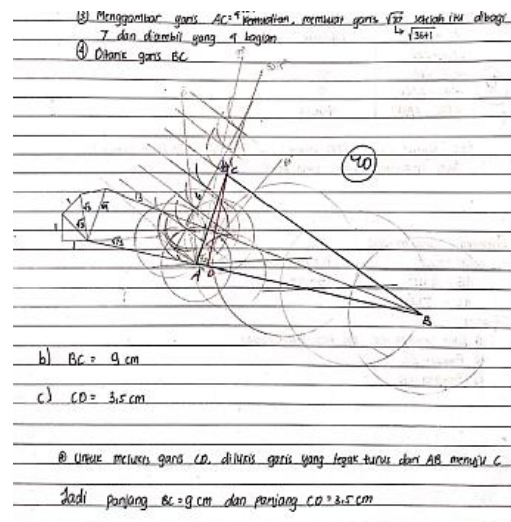 ③ Menggambar garis AC = 4 kemudian, membuat garis √37 setelah itu dibagi
↳ √36+1
7 dan diambil yang 4 bagian
④ Ditarik garis BC
40
C
A
D
B
1
1
1
√2
√3
√13
b) BC = 9 cm
c) CD = 3,5 cm
⊕ Untuk melukis garis CD, dilukis garis yang tegak lurus dari AB menuju C
Jadi panjang BC = 9 cm dan panjang CD = 3,5 cm